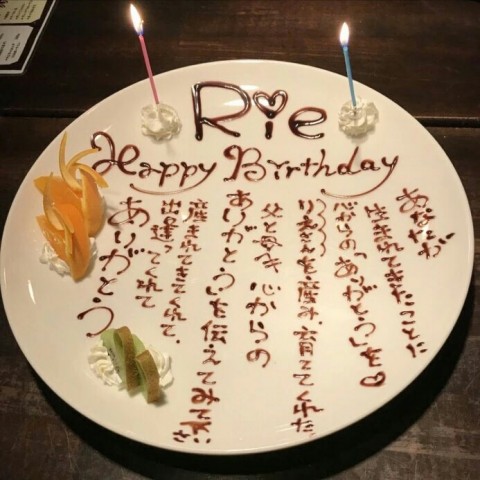 Rie
Happy Birthday
あなたが
生まれてきたことに
心からの「ありがとう」を♡
りえさんを産み、育ててくれた
父と母へ 心からの
ありがとうを伝えてみて下さい
産まれてきてくれて、
出逢ってくれて
ありがとう